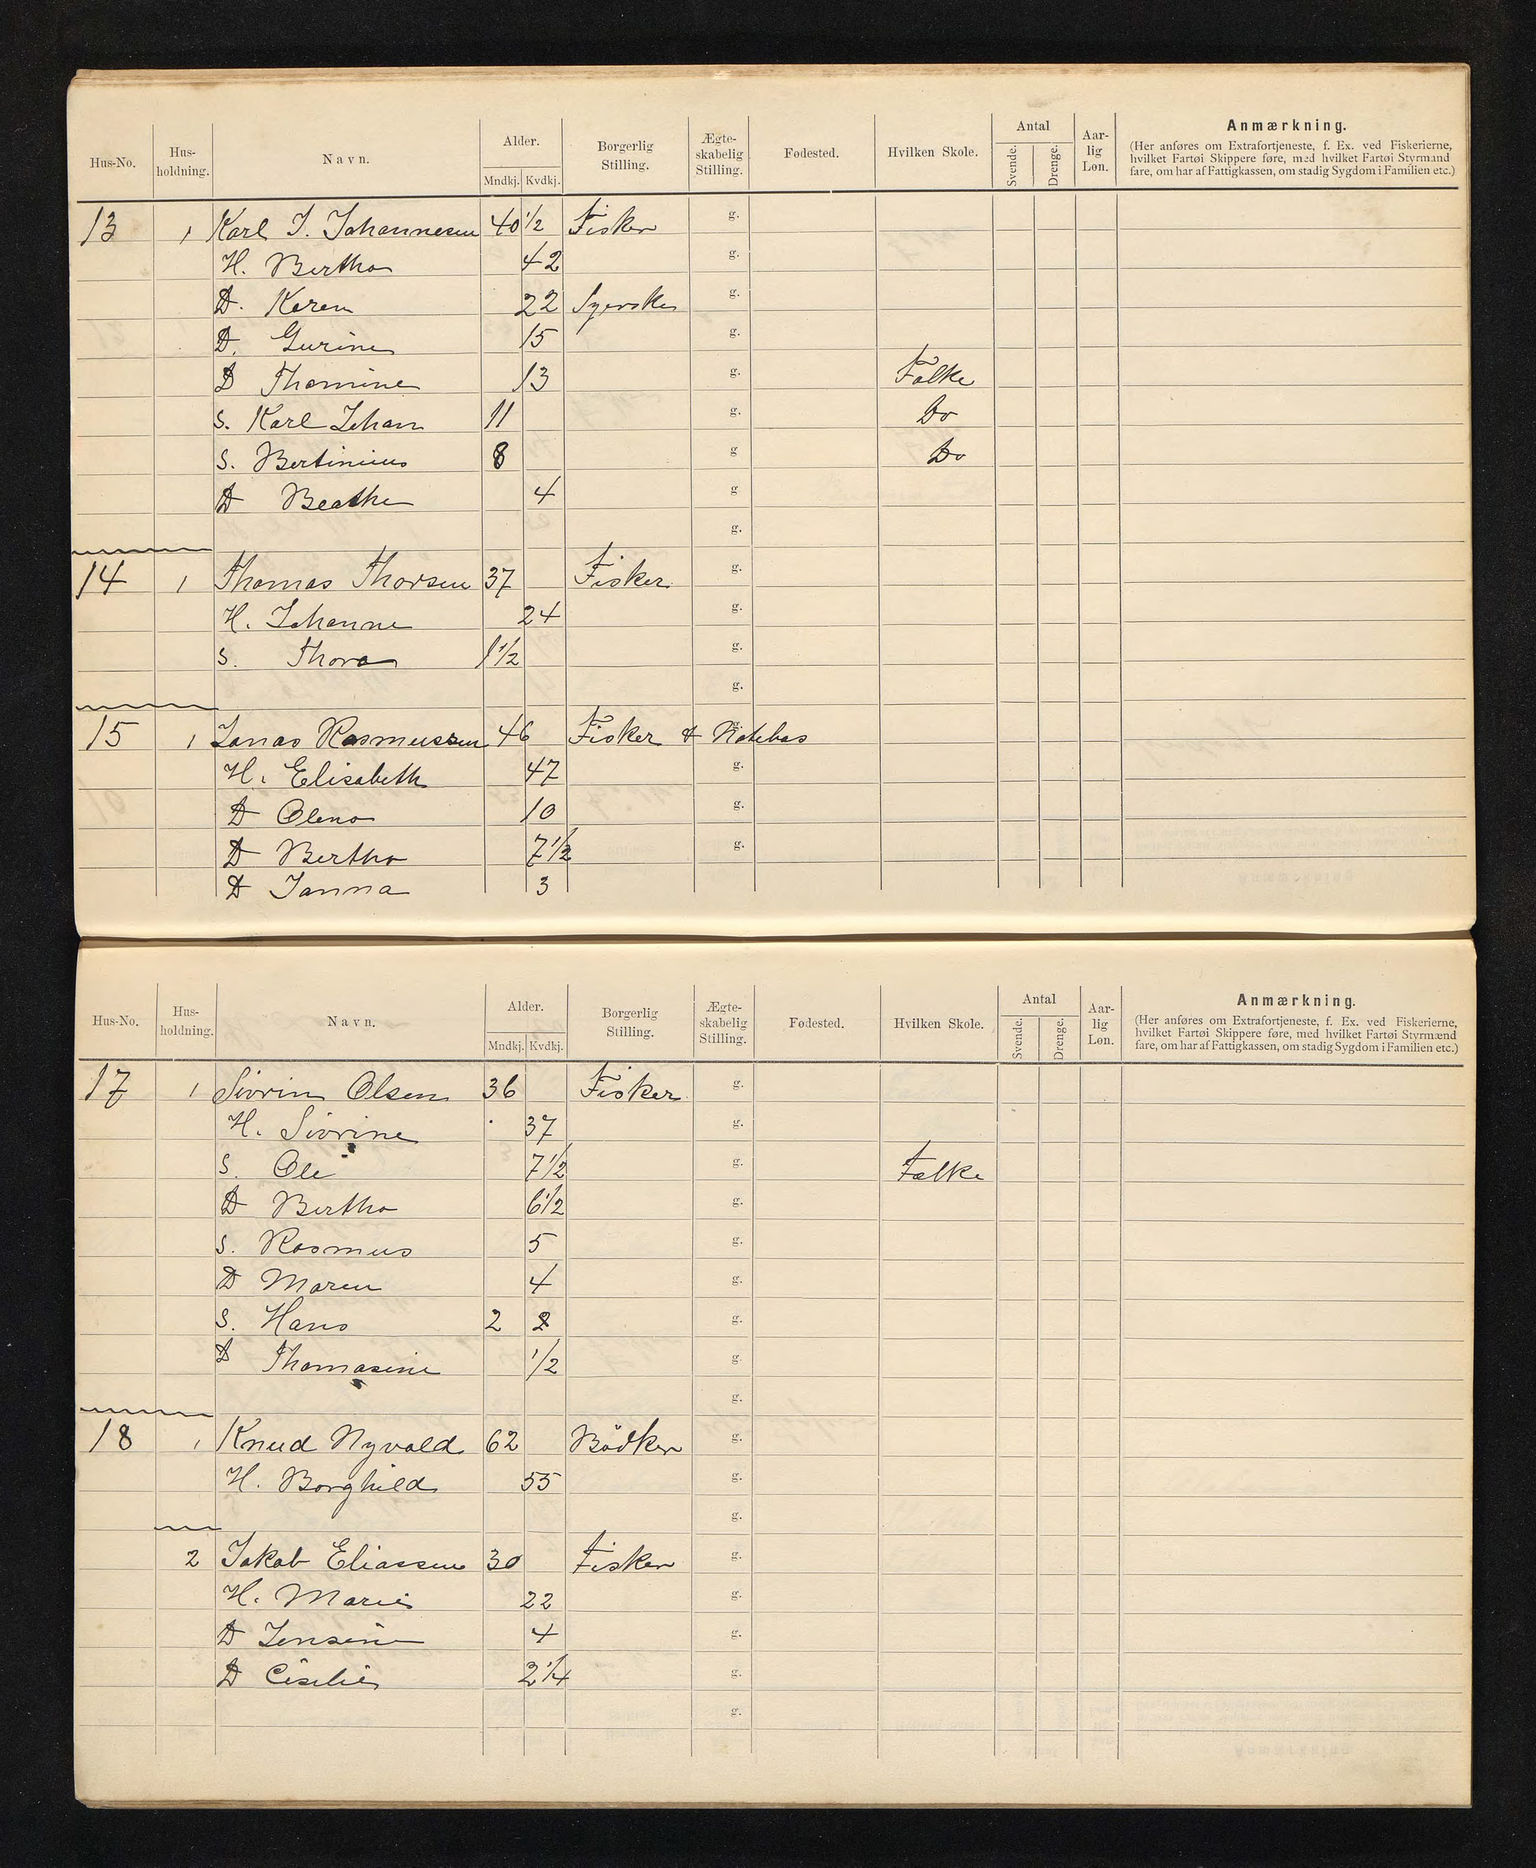 Hus-No. Hus-holdning. Navn. Alder. Mndkj. Kvdkj. Borgerlig Stilling. Ægte-skabelig Stilling. Fødested. Hvilken Skole. Antal Svende. Drenge. Aar-lig Løn. Anmærkning.
(Her anføres om Extrafortjeneste, f. Ex. ved Fiskerierne,
hvilket Fartøi Skippere føre, med hvilket Fartøi Styrmænd
fare, om har af Fattigkassen, om stadig Sygdom i Familien etc.)
13 1 Karl J. Johannesen 40 1/2 Fisker g.
H. Bertha 42 g.
D. Karen 22 Syerske g.
D. Gurine 15 g.
D Thomine 13 g. Folke
S. Karl Johan 11 g. Do
S. Bertinius 8 g Do
D Beathe 4 g
g.
14 1 Thomas Thorsen 37 Fisker g.
H. Johanne 24 g.
S. Thora 1 1/2 g.
g.
15 1 Jonas Rasmussen 46 Fisker & Notebas g.
H. Elisabeth 47 g.
D Olena 10 g.
D Bertha 7 1/2 g.
D Janna 3
Hus-No. Hus-holdning. Navn. Alder. Mndkj. Kvdkj. Borgerlig Stilling. Ægte-skabelig Stilling. Fødested. Hvilken Skole. Antal Svende. Drenge. Aar-lig Løn. Anmærkning.
(Her anføres om Extrafortjeneste, f. Ex. ved Fiskerierne,
hvilket Fartøi Skippere føre, med hvilket Fartøi Styrmænd
fare, om har af Fattigkassen, om stadig Sygdom i Familien etc.)
17 1 Sivrin Olsen 36 Fisker g.
H. Sivrine 37 g.
S. Ole 7 1/2 g. Folke
D Bertha 6 1/2 g.
S. Rasmus 5 g.
D Maren 4 g.
S. Hans 2 2 g.
D Thomasine 1/2 g.
g.
18 1 Knud Nyvold 62 Bödker g.
H. Borghild 55 g.
g.
2 Jakob Eliassen 30 Fisker g.
H. Marie 22 g.
D Jensine 4 g.
D Cicilie 2 1/4 g.
g.